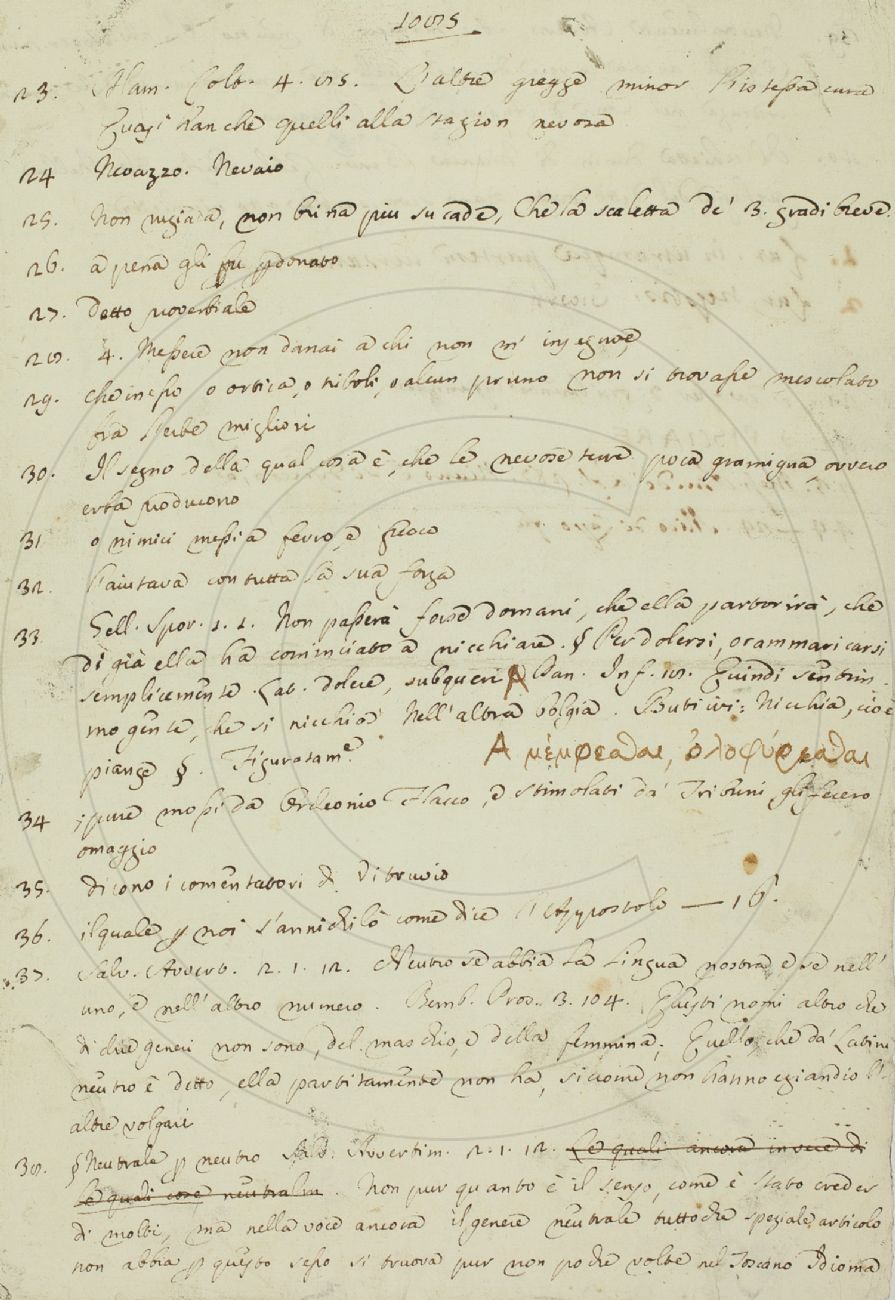 23. Alam. Colt. 4. 85. L'altre gregge minor l'istessa cura
Quasi han che quelli alla stagion nevosa
24 Nevazzo. Nevaio
25. Non rugiada, non brina piu su cade, Che la scaletta de' 3. gradi breve.
26. a pena gli fu pdonato
27. detto proverbiale
28. 4. Messere non danai a chi non
29. che in esso o ortica, o triboli, o alcun pruno non si trovasse mescolato
tra l'erbe migliori
30. Il segno della qual cosa è, che le nevose terre poca gramigna, ovvero
erba producono
31 o nimici messi a ferro, e fuoco
32. l'aiutava con tutta la sua forza
33 Gell. Spor. 1. 1. Non passerà forse domani, che ella partorirà, che
di già ella ha cominciato a nicchiare. § Per dolersi, o rammaricarsi
semplicemente. Lat. dolere, subqueri A Dan. Inf. 18. Quindi sentim-
mo gente, che si nicchia Nell'altra bolgia. But. ivi: Nicchia, cioè
piange §. Figuratam.e
A μέμφεσθαι, ὀλοφύρεσθαι
34 ; pure mossi da Ordeonio Flacco, e stimolati da' Tribuni gli fecero
omaggio
35. dicono i comentatori di Vitruvio
36. il quale p noi s'annichilò come dice l'Appostolo — 16.
37. Salv. Avvert. 2. 1. 12. Neutro se abbia la lingua nostra, e se nell'
uno, e nell'altro numero. Bemb. Pros. 3. 104. Questi nomi altro che
di due generi non sono, del maschio, e della femmina; Quello, che da' Latini
neutro è detto, ella partitamente non ha, siccome non hanno eziandio l'
altre volgari
38. § Neutrale p neutro Salv. Avvertim. 2. 1. 12. Le quali ancora in vece di
le quali cose neutral. Non pur quanto è il senso, come è stato creder
di molti, ma nella voce ancora il genere neutrale tuttoche speziale articolo
non abbia p questo sesso si truova pur non poche volte nel Toscano Idioma